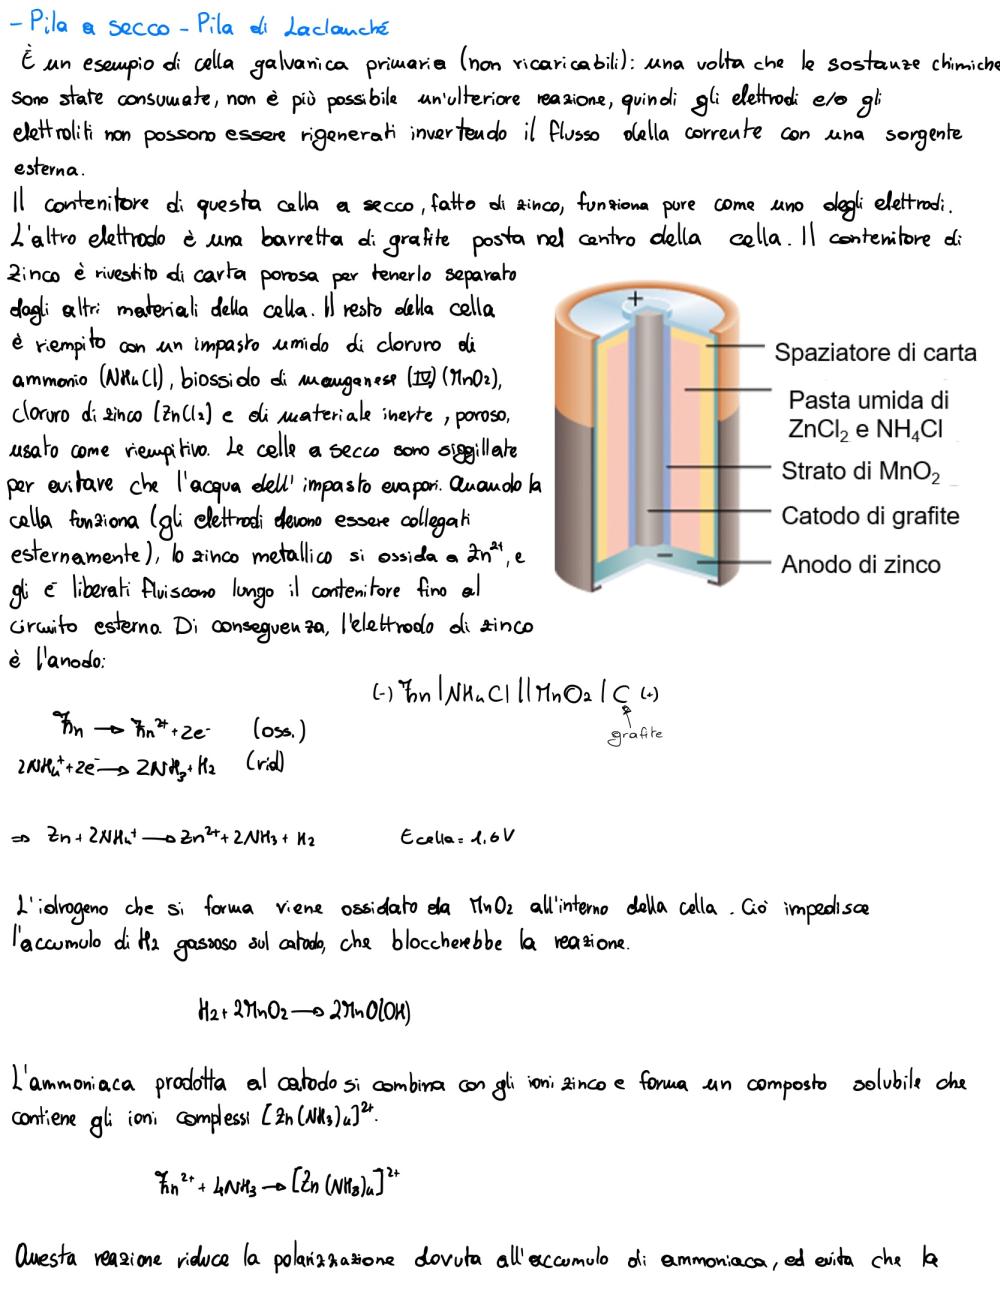 - Pila a secco - Pila di Laclanché
È un esempio di cella galvanica primaria (non ricaricabili): una volta che le sostanze chimiche
sono state consumate, non è più possibile un'ulteriore reazione, quindi gli elettrodi e/o gli
elettroliti non possono essere rigenerati invertendo il flusso della corrente con una sorgente
esterna.
Il contenitore di questa cella a secco, fatto di zinco, funziona pure come uno degli elettrodi.
L'altro elettrodo è una barretta di grafite posta nel centro della cella. Il contenitore di
zinco è rivestito di carta porosa per tenerlo separato
dagli altri materiali della cella. Il resto della cella
è riempito con un impasto umido di cloruro di
ammonio (NH₄Cl), biossido di manganese (IV) (MnO₂),
cloruro di zinco (ZnCl₂) e di materiale inerte, poroso,
usato come riempitivo. Le celle a secco sono siggillate
per evitare che l'acqua dell'impasto evapori. Quando la
cella funziona (gli elettrodi devono essere collegati
esternamente), lo zinco metallico si ossida a Zn²⁺, e
gli e⁻ liberati fluiscono lungo il contenitore fino al
circuito esterno. Di conseguenza, l'elettrodo di zinco
è l'anodo:
+
Spaziatore di carta
Pasta umida di
ZnCl₂ e NH₄Cl
Strato di MnO₂
Catodo di grafite
−
Anodo di zinco
(-) Zn | NH₄Cl || MnO₂ | C (+)
grafite
Zn → Zn²⁺ + 2e⁻ (oss.)
2NH₄⁺ + 2e⁻ → 2NH₃ + H₂ (rid)
⇒ Zn + 2NH₄⁺ → Zn²⁺ + 2NH₃ + H₂ Ecella = 1,6 V
L'idrogeno che si forma viene ossidato da MnO₂ all'interno della cella. Ciò impedisce
l'accumulo di H₂ gassoso sul catodo, che bloccherebbe la reazione.
H₂ + 2MnO₂ → 2MnO(OH)
L'ammoniaca prodotta al catodo si combina con gli ioni zinco e forma un composto solubile che
contiene gli ioni complessi [Zn(NH₃)₄]²⁺.
Zn²⁺ + 4NH₃ → [Zn(NH₃)₄]²⁺
Questa reazione riduce la polarizzazione dovuta all'accumulo di ammoniaca, ed evita che la